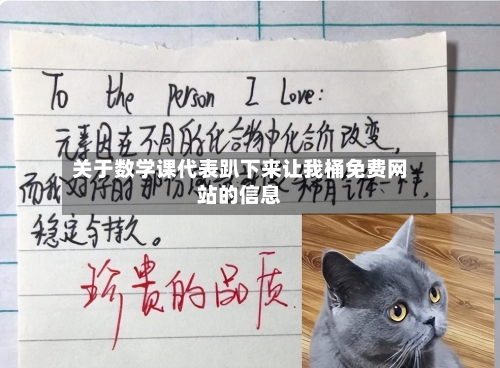 To the person I Love:
元素因在不同的化合物中化合价改变,
关于数学课代表趴下来让我桶免费网
站的信息
而我对你的那份
稀有气体一样,
稳定与持久。
珍贵的品质